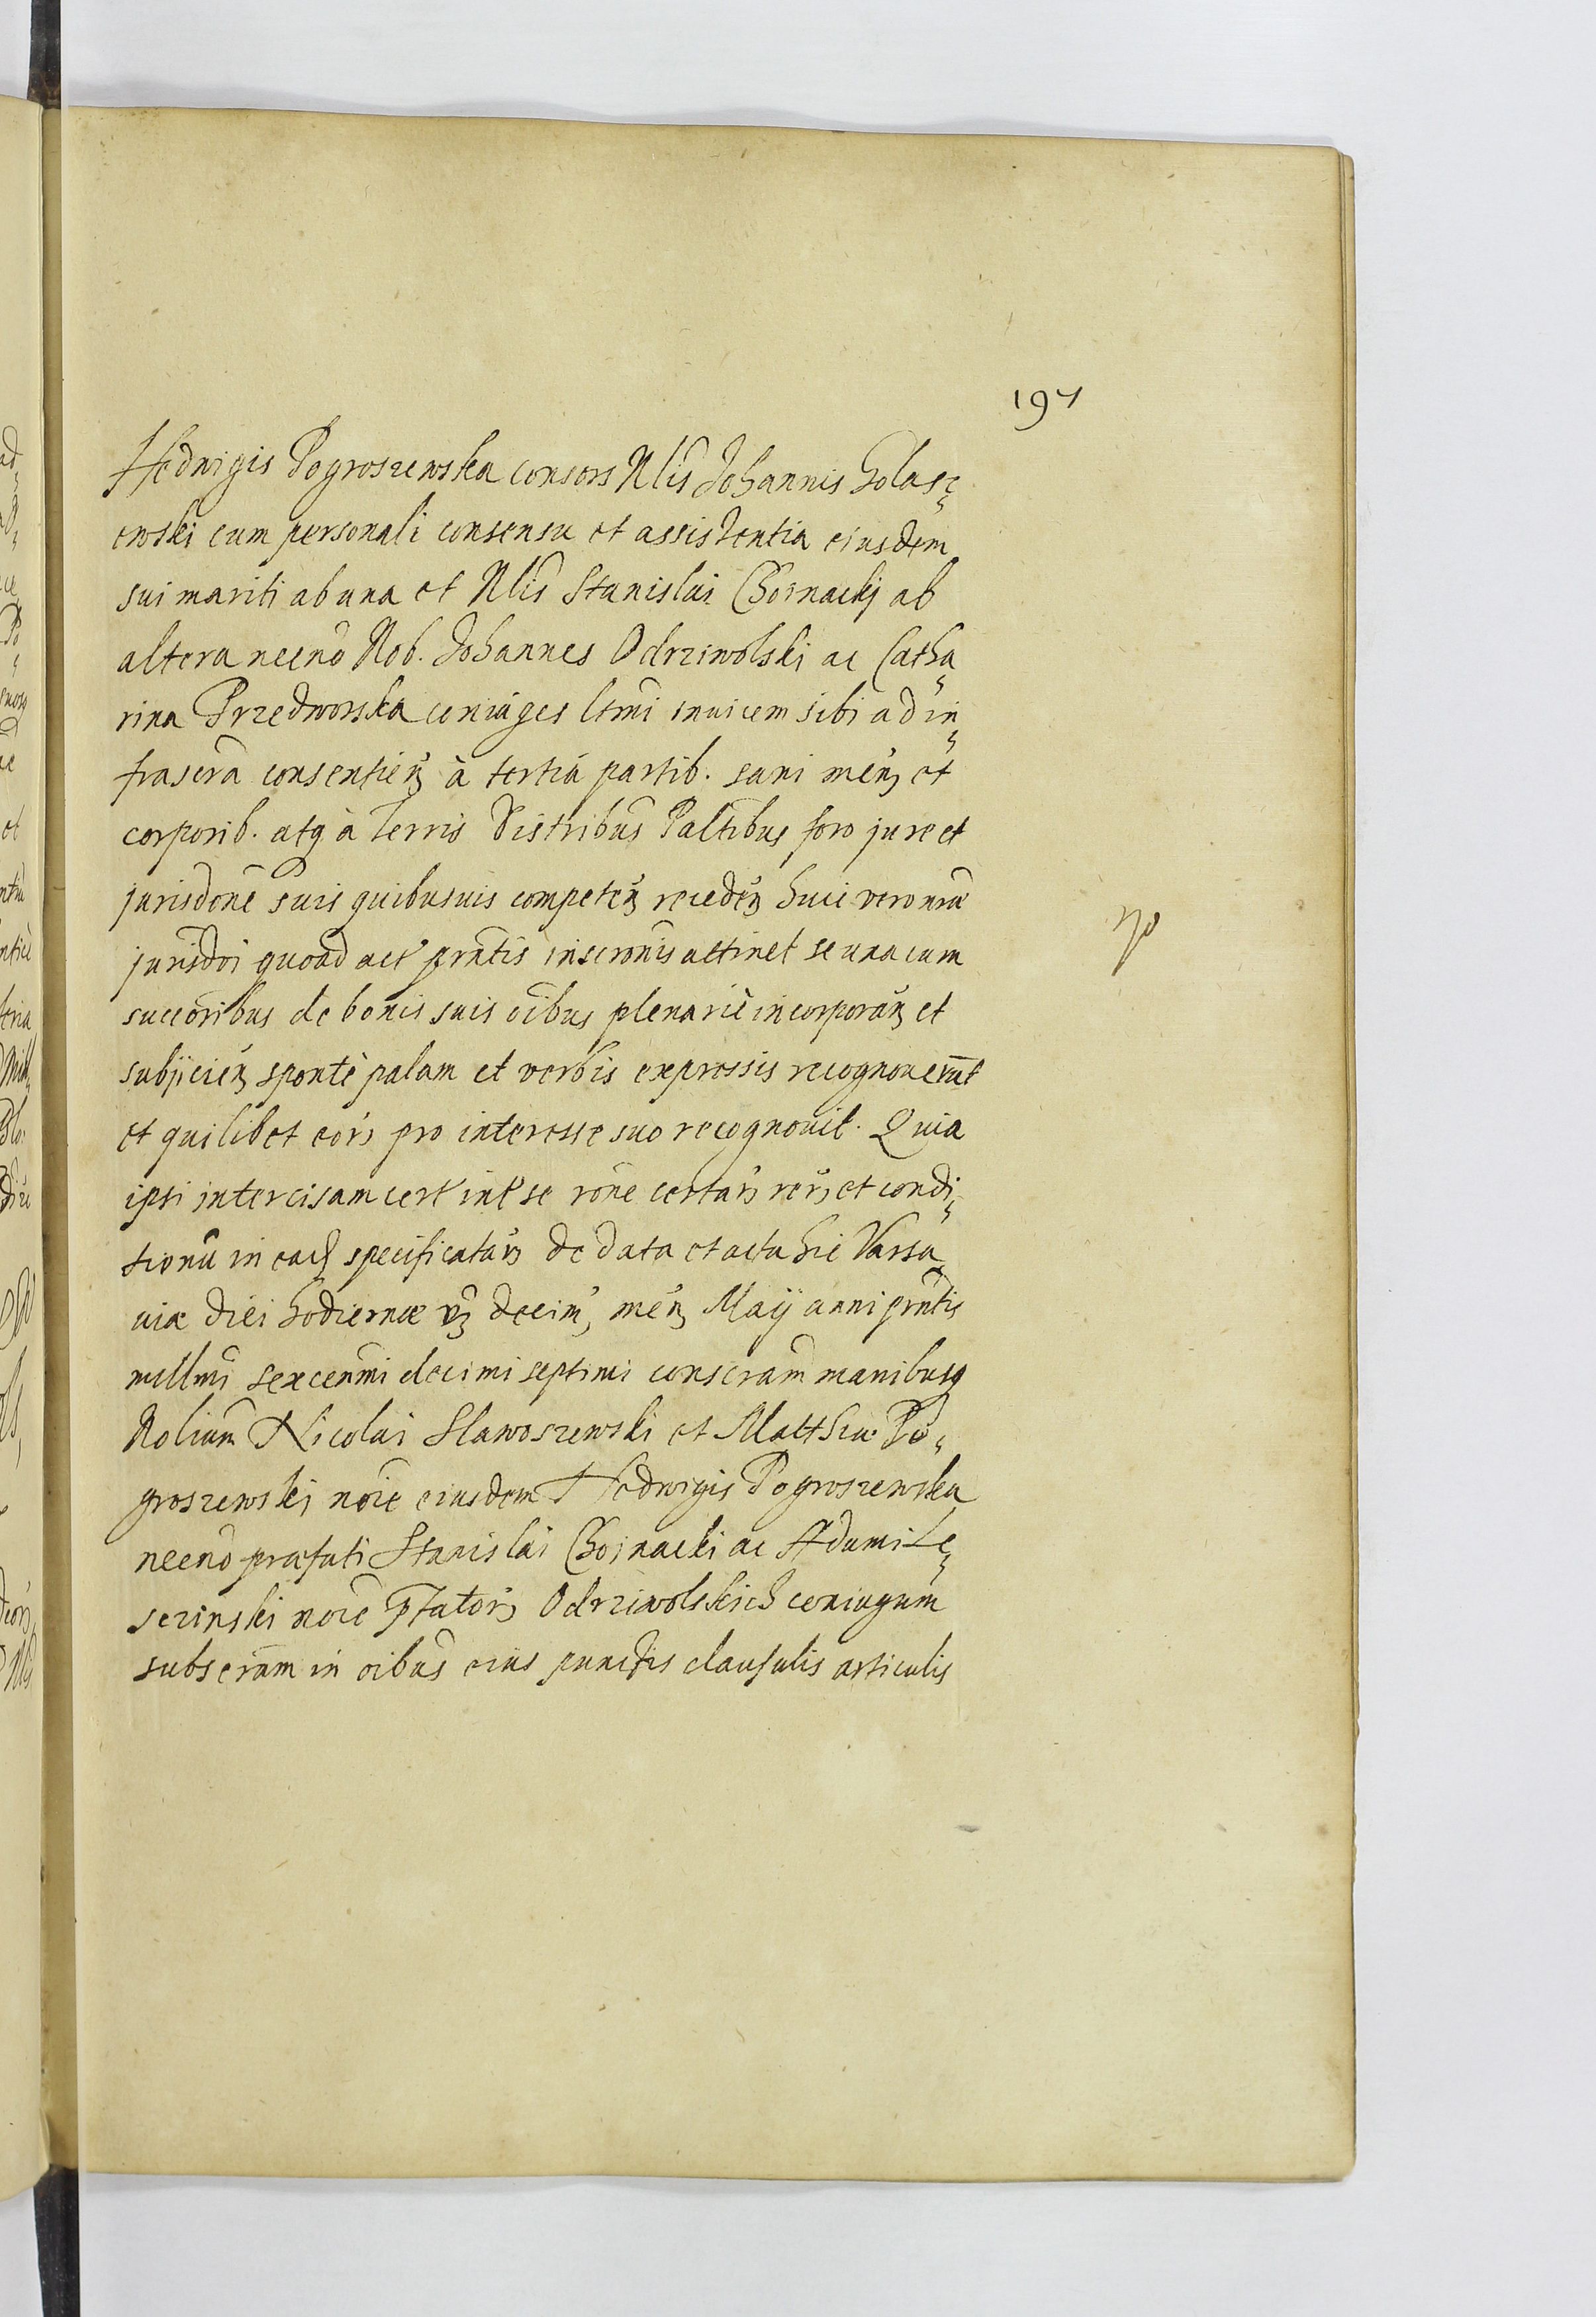 197
Hedwigis Pogroszewska consors Nlis Johannis Golasz„
ewski cum personali consensu et assistentia eiusdem
sui mariti ab una et Nlis Stanislai Choinackj ab
altera necnō Nob. Johannes Odrziwolski ac Catha„
rina Przedworska coniuges ltmi inuicem sibi ad in„
frascra consentieñ à tertia partib. sani meñ et
corporib. atq à Terris Distribus Paltibus foro jure et
jurisdone suis quibusuis competeñ recedeñ huic vero nrae
jurisdoi quoad act prntis inscronis attinet se una cum
succoribus de bonis suis oibus plenariè incorporañ et
subjicieñ spontè palam et verbis expressis recognouerūt
et quilibet eor pro interesse suo recognouit. Quia
ipsi intercisam cert int se rōne certar rer et condi„
tionū in ead specificatar de data et acta hic Varsa„
uiæ diei hodiernæ vz decim meñ Maij anni prntis
millmi sexcenmi decimi septimi conscram manibusq
Nolium Nicolai Slawoszewski et Matthiæ Po„
groszewski noie eiusdem Hedwigis Pogroszewska
necnō præfati Stanislai Choinacki ac Adami Le„
sczinski noie pfator Odrziwolskich coniugum
subscram in oibus eius punctis clausulis articulis